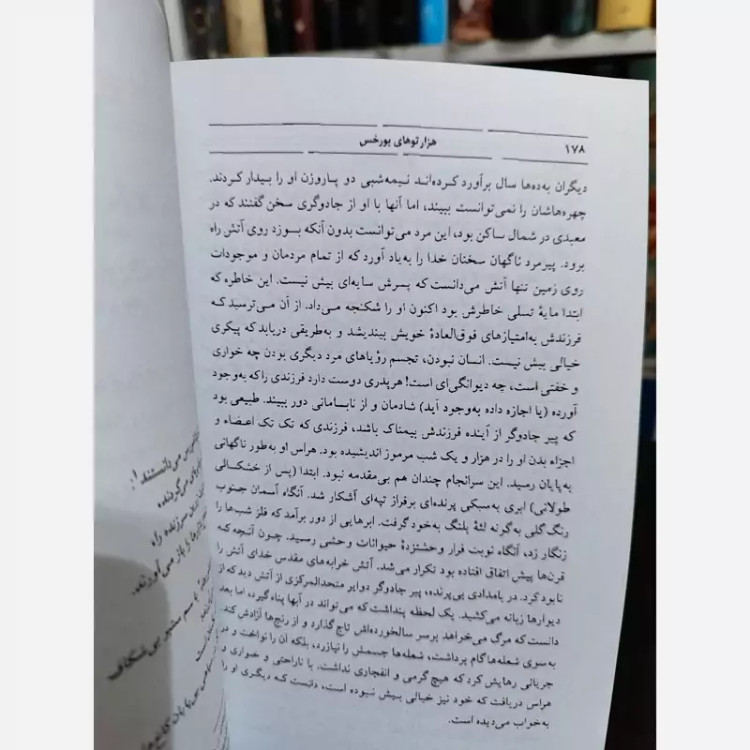 ۱۷۸
هزارتوهای بورخس
دیگران به‌ده‌ها سال برآورد کرده‌اند نیمه‌شبی دو پاروزن او را بیدار کردند.
چهره‌هاشان را نمی‌توانست ببیند، اما آنها با او از جادوگری سخن گفتند که در
معبدی در شمال ساکن بود، این مرد می‌توانست بدون آنکه بسوزد روی آتش راه
برود. پیرمرد ناگهان سخنان خدا را به‌یاد آورد که از تمام مردمان و موجودات
روی زمین تنها آتش می‌دانست که پسرش سایه‌ای بیش نیست. این خاطره که
ابتدا مایهٔ تسلی خاطرش بود اکنون او را شکنجه می‌داد. از آن می‌ترسید کـه
فرزندش به‌امتیازهای فوق‌العادهٔ خویش بیندیشد و به‌طریقی دریابد که پیکری
خیالی بیش نیست. انسان نبودن، تجسم رؤیاهای مرد دیگری بودن چه خواری
و خفتی است، چه دیوانگی‌ای است! هر پدری دوست دارد فرزندی را که به‌وجود
آورده (یا اجازه داده به‌وجود آید) شادمان و از نابسامانی دور ببیند. طبیعی بود
که پیر جادوگر از آینده فرزندش بیمناک باشد، فرزندی که تک تک اعضاء و
اجزاء بدن او را در هزار و یک شب مرموز اندیشیده بود. هراس او به‌طور ناگهانی
به‌پایان رسید. این سرانجام چندان هم بی‌مقدمه نبود. ابتدا (پس از خشکسالی
طولانی) ابری به‌سبکی پرنده‌ای برفراز تپه‌ای آشکار شد. آنگاه آسمان جنوب
رنگ گلی به‌گونه لثهٔ پلنگ به‌خود گرفت. ابرهایی از دور برآمد که فلز شب‌ها را
زنگار زد، آنگاه نوبت فرار وحشتزدهٔ حیوانات وحشی رسید. چون آنچـه کـه
قرن‌ها پیش اتفاق افتاده بود تکرار می‌شد. آتش خرابه‌های مقدس خدای آتش را
نابود کرد. در بامدادی بی‌پرنده، پیر جادوگر دوایر متحدالمرکزی از آتش دید که از
دیوارها زبانه می‌کشید. یک لحظه پنداشت که می‌تواند در آبها پناه گیرد، اما بعد
دانست که مرگ می‌خواهد برسر سالخورده‌اش تاج گذارد و از رنج‌ها آزادش کند.
به‌سوی شعله‌ها گام برداشت، شعله‌ها جسمش را نیازرد، بلکه آن را نواخت و در
جریانی رهایش کرد که هیچ گرمی و انفجاری نداشت. با ناراحتی و خـواری و
هراس دریافت که خود نیز خیالی بیش نبوده است، دانست کـه دیگـری او را
به‌خواب می‌دیده است.
می‌دانستند!:
می‌گردند،
سرزنده راه
را باز می‌آورند.
با سم ستبر بی‌شکاف